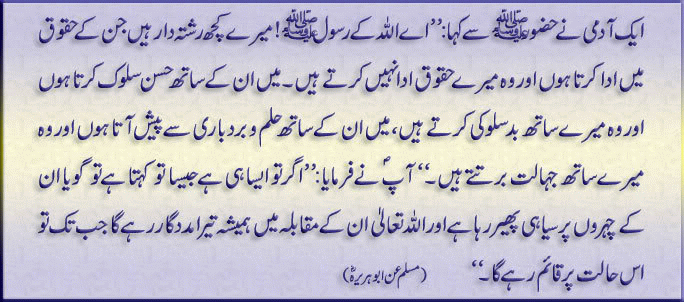 ایک آدمی نے حضورﷺ سے کہا: ’’اے اللہ کے رسولﷺ! میرے کچھ رشتہ دار ہیں جن کے حقوق
میں ادا کرتا ہوں اور وہ میرے حقوق ادا نہیں کرتے ہیں۔ میں ان کے ساتھ حسن سلوک کرتا ہوں
اور وہ میرے ساتھ بدسلوکی کرتے ہیں، میں ان کے ساتھ حلم و بردباری سے پیش آتا ہوں اور وہ
میرے ساتھ جہالت برتتے ہیں۔‘‘ آپؐ نے فرمایا: ’’اگر تو ایسا ہی ہے جیسا تو کہتا ہے تو گویا ان
کے چہروں پر سیاہی پھیر رہا ہے اور اللہ تعالیٰ ان کے مقابلہ میں ہمیشہ تیرا مددگار رہے گا جب تک تو
اس حالت پر قائم رہے گا۔‘‘ (مسلم عن ابو ہریرہؓ)